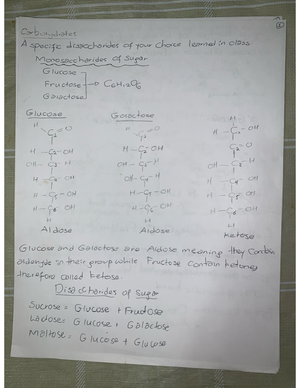 Carbohydrates
A specific disaccharides of your choice learned in class
Monosaccharides of Sugar
Glucose
Fructose → C6H12O6
Galactose
Glucose Galactose
H H H
C O C O H - C - OH
H - C - OH H - C - OH C = O
OH - C - H OH - C - H OH - C - H
H - C - OH OH - C - H H - C - OH
H - C - OH H - C - OH H - C - OH
H - C - OH H - C - OH H - C - OH
H H H
Aldose Aldose Ketose
Glucose and Galactose are Aldose meaning they contain
aldehyde in their group while Fructose contain ketones
therefore called ketose.
Disaccharides of Sugar
Sucrose = Glucose + Fructose
Lactose = Glucose + Galactose
Maltose = Glucose + Glucose